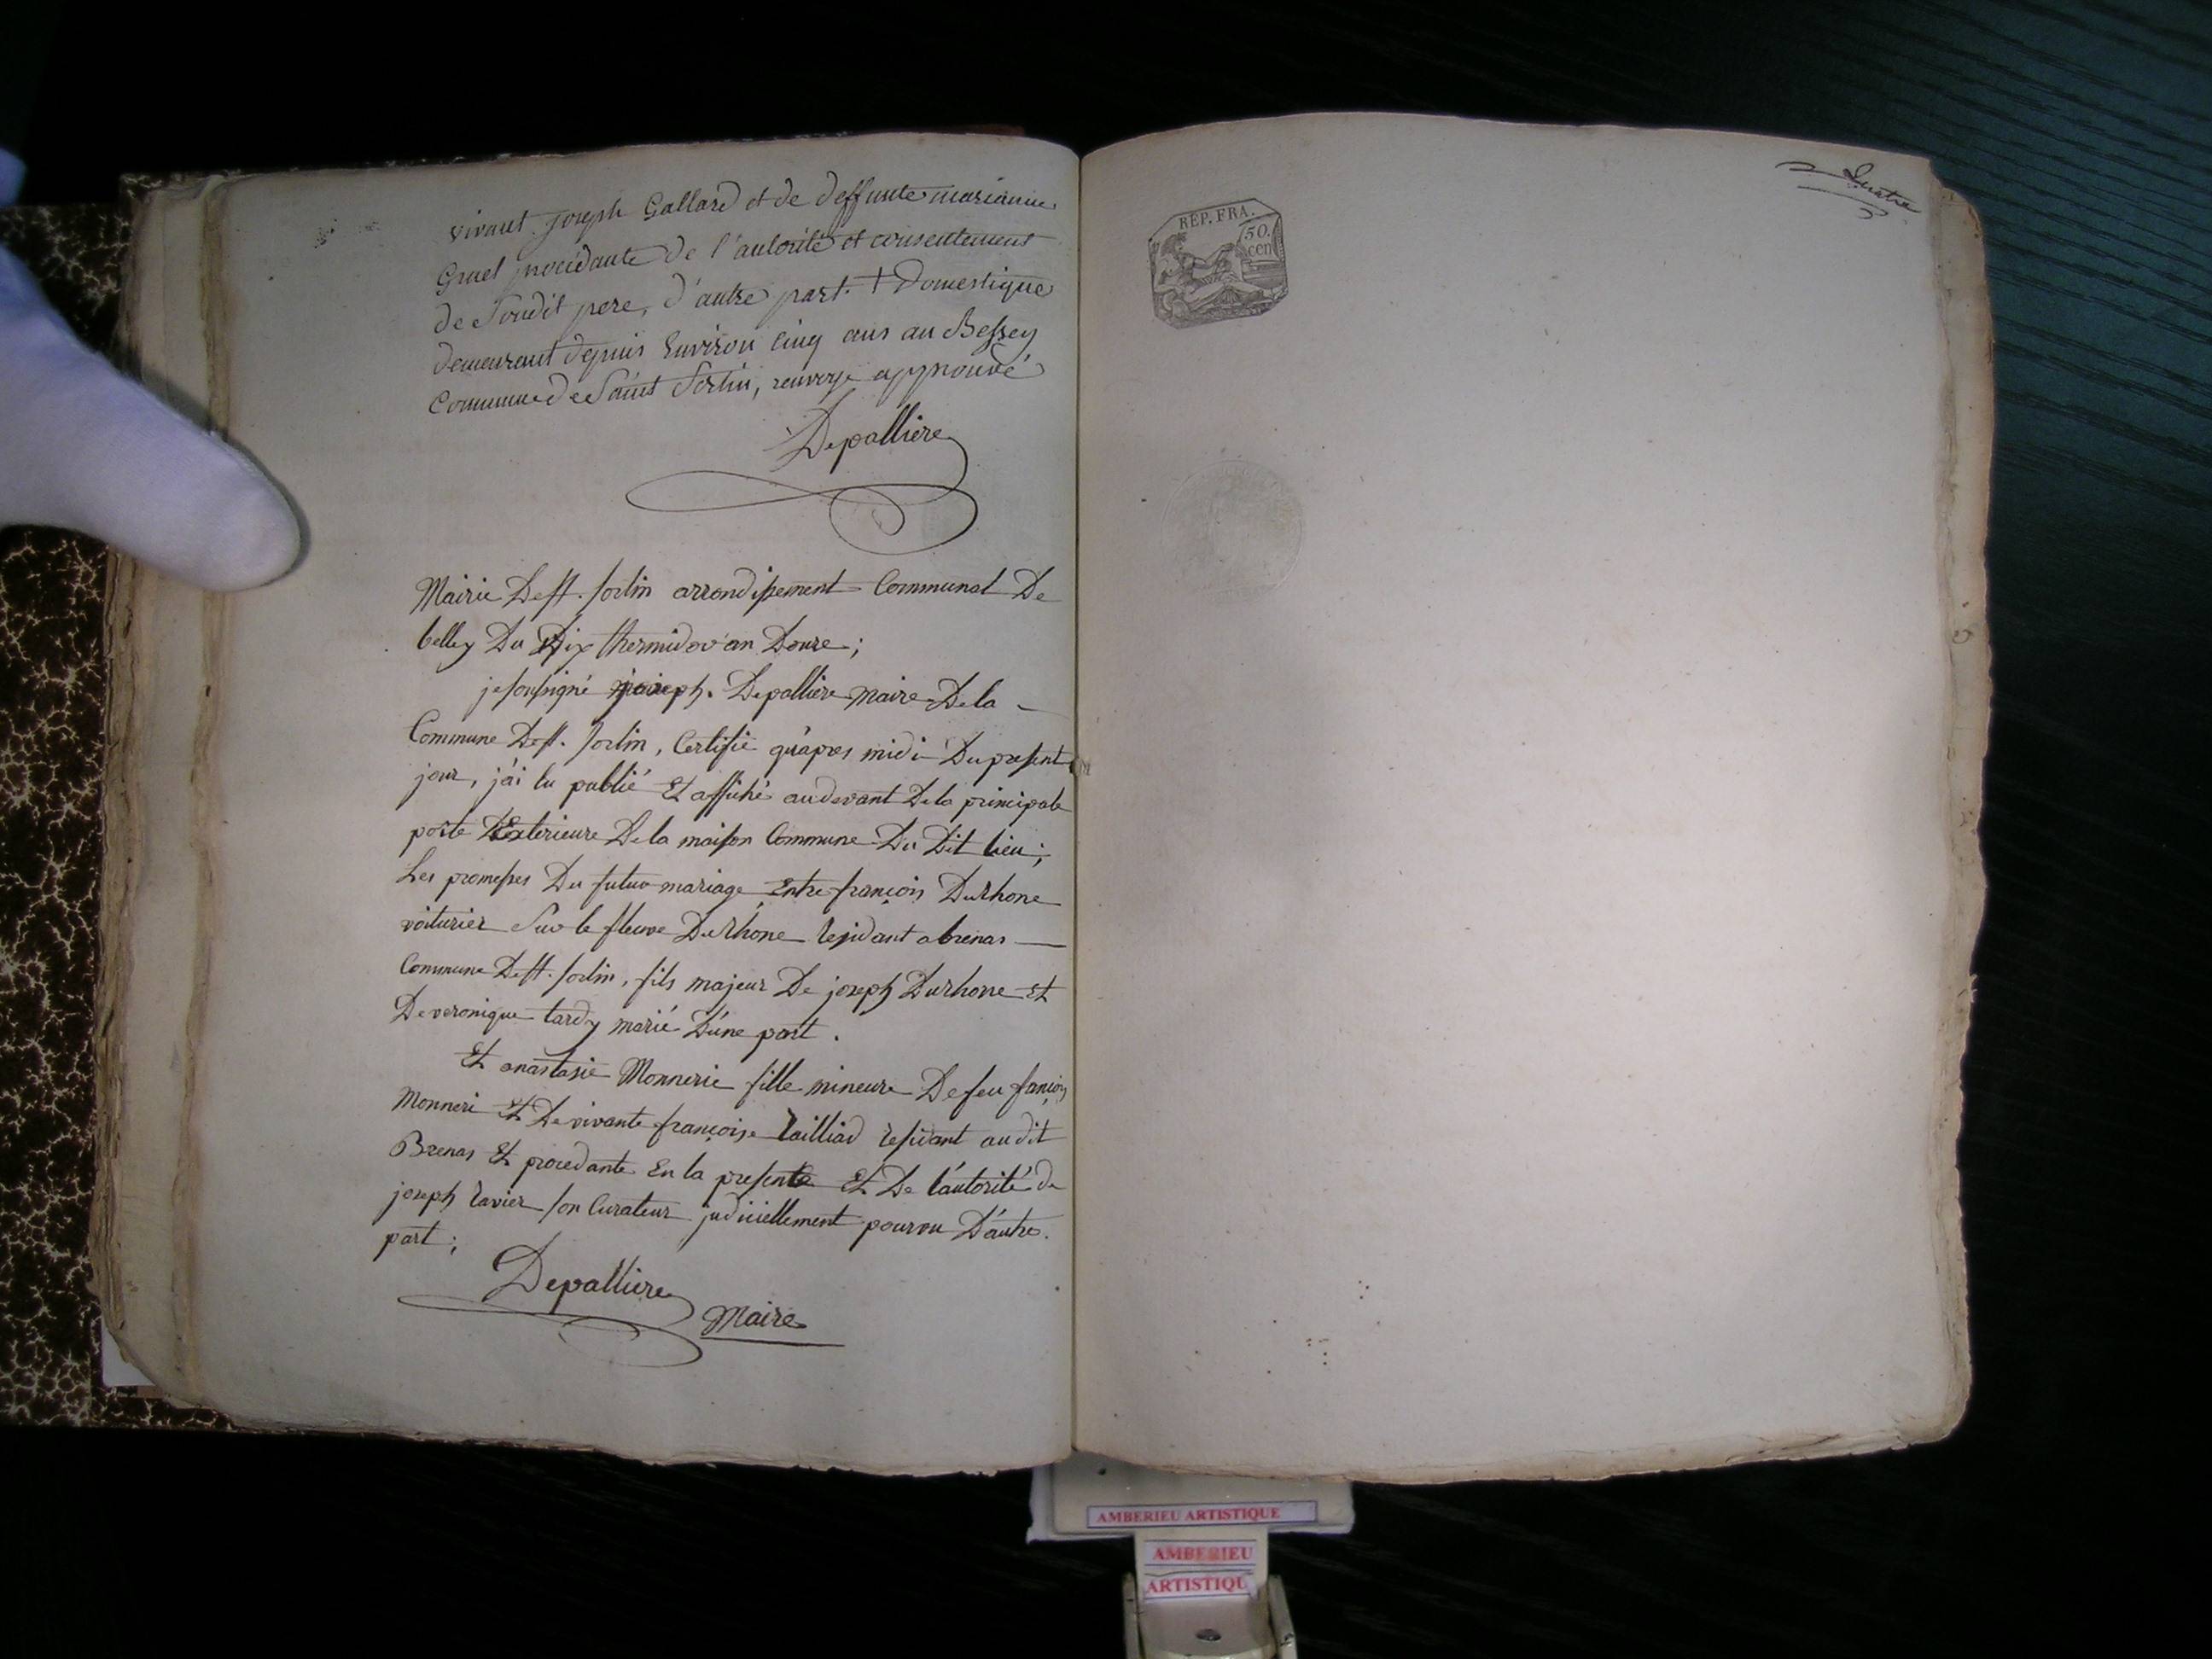 vivant joseph Gallard et de deffunte marianne
Gruel procédante de l'autorité et consentement
de Soudit pere, d'autre part. † Domestique
demeurant depuis Environ Cinq ans au Bessey
Commune de Saint Sorlin, renvoye approuvé
Depalliere
Mairie De St. Sorlin arrondissement Communal De
belley Du Dix thermidor an Douze;
je soussigné joseph. Depalliere maire De la
Commune De St. Sorlin, Certifie qu'apres midi Du present
jour, j'ai lu publié Et affiché audevant De la principale
porte Exterieure De la maison Commune Du Dit lieu;
Les promesses Du futur mariage Entre françois Durhone
voiturier Sur le fleuve Du Rhone residant a brenas
Commune De St. Sorlin, fils majeur De joseph Durhone Et
De veronique tardy marié D'une part.
Et anastasie Monnerie fille mineure De feu françois
Monneri Et De vivante françoise railliad residant au dit
Brenas Et procedante En la presente Et De l'autorité de
joseph ravier son Curateur judiciellement pourvu D'autre.
part;
Depalliere
Maire
Quatre
REP. FRA.
50.
cen
AMBERIEU ARTISTIQUE
AMBERIEU
ARTISTIQU